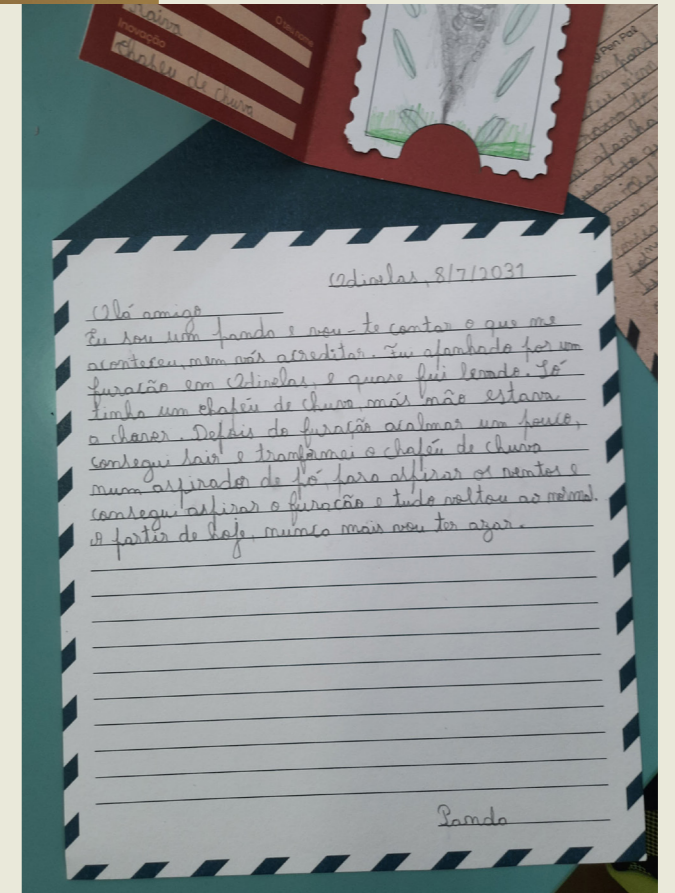 Raiva
O teu nome
Inovação
Chapéu de chuva
Pen Pal
Odivelas, 8/7/2031
Olá amigo
Eu sou um panda e vou-te contar o que me
aconteceu, nem vás acreditar. Fui apanhado por um
furacão em Odivelas, e quase fui levado. Só
tinha um chapéu de chuva, mas não estava
a chover. Depois do furacão acalmar um pouco,
consegui sair e tranformei o chapéu de chuva
num aspirador de pó para aspirar os ventos e
consegui aspirar o furacão e tudo voltou ao normal.
A partir de hoje, nunca mais vou ter azar.
Panda